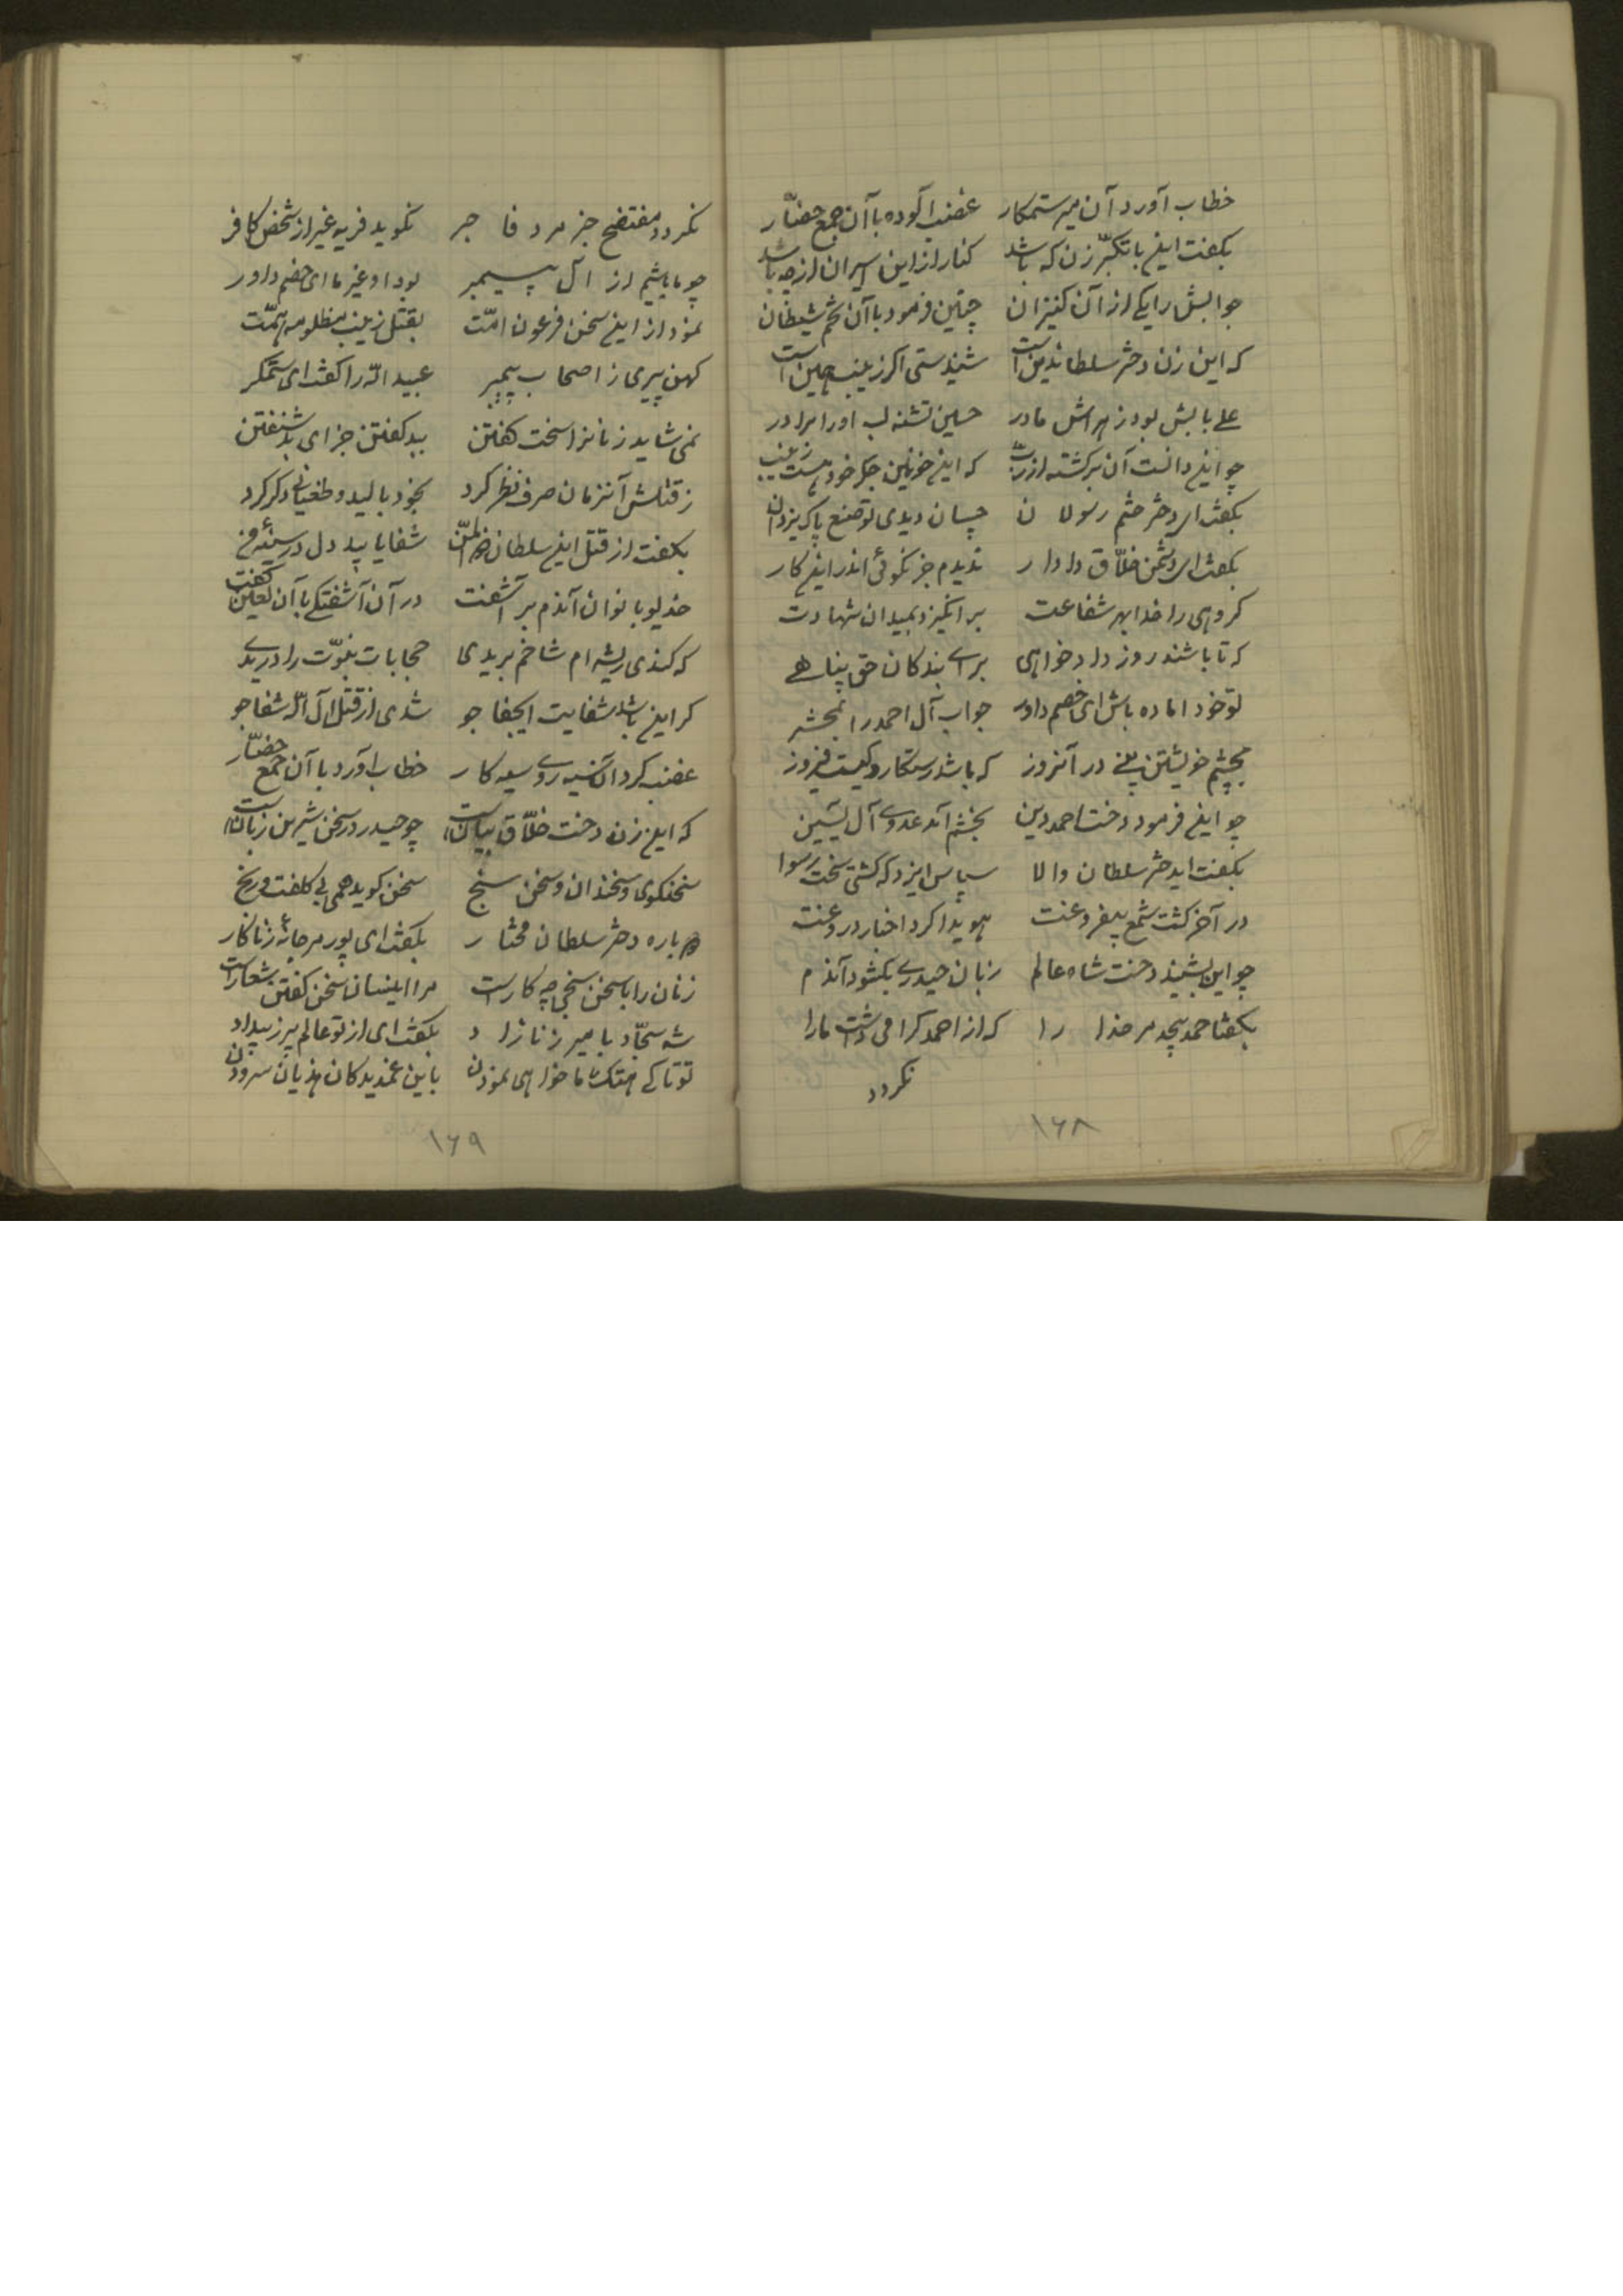 خطاب آورد آن میر ستمکار غضب آلوده با آن جمع حضّار
بکفت این با تکبّر زن که باشد کنار از این اسیران از چه باشد
جوابش را یکی از آن کنیزان چنین فرمود با آن شیطان
که این زن دختر سلطاندین است شنیدستی اکر زینب همین است
علی بابش بود زهراش مادر حسین تشنه لب او را برادر
چو این دانست آن برکشته از رب که این خونین جکر خود هست زینب
بکفت ای دختر ختم رسولان چسان دیدی تو صنع پاک یزدان
بکفت ای دشمن خلّاق دادار ندیدم جز نکوئی اندر این کار
کروهی را خدا بهر شفاعت برانکیزد بمیدان شهادت
که تا باشند روز دادخواهی برای بندکان حق پناهی
تو خود اماده باش ای خصم داور جواب آل احمد را بمحشر
بچشم خویشتن بینی در آنروز که باشد رستکار و کیست فیروز
چو این فرمود دخت احمد دین بخشم آمد عدوی آل یسین
بکفت ایدختر سلطان والا سپاس ایزد که کشتی سخت رسوا
در آخر کشت شمع بیفروغت هویدا کرد اخبار دروغت
چو این بشنید دخت شاه عالم زبان حیدری بکشود آندم
بکفتا حمد بیحد مر خدا را که از احمد کرامی داشت مارا
نکردد
۱۶۸
نکردد مفتضح جز مرد فاجر نکوید فریه غیر از شخص کافر
چو ما باشیم از آل پیمبر بود او غیر ما ای خصم داور
نمود از این سخن فرعون امّت بقتل زینب مظلومه همّت
کهن پیری ز اصحاب پیمبر عبید الله را کفت ای ستمکر
نمی شاید زنانرا سخت کفتن بید کفتن جزای بد شنفتن
ز قتلش آنزمان صرف نظر کرد بخود بالید و طغیانی دکر کرد
بکفت از قتل این سلطان شفا یابید دل در سینهٔ من
خدیو بانوان آندم بر آشفت در آن آشفتکی با آن لعین کفت
که کندی ریشه ام شاخم بریدی حجابات نبوّت را دریدی
کر این باشد شفایت ایجفا جو شدی از قتل آل الله شفا جو
غضب کرد آن سیه روی سیه کار خطاب آورد با آن جمع حضّار
که این زن دخت خلّاق بیان است چو حیدر در سخن شیرین زبان است
سخنکوی و سخندان و سخن سنج سخن کوید همی بی کلفت و رنج
دوباره دختر سلطان مختار بکفت ای پور مرجانهٔ زناکار
زنان را با سخن سنجی چه کار است مرا اینسان سخن کفتن شعار است
شه سجّاد با میر زنازاد بکفت ای از تو عالم پر ز بیداد
تو تا کی هتک ما خواهی نمودن باین غمدیدکان هذیان سرودن
۱۶۹